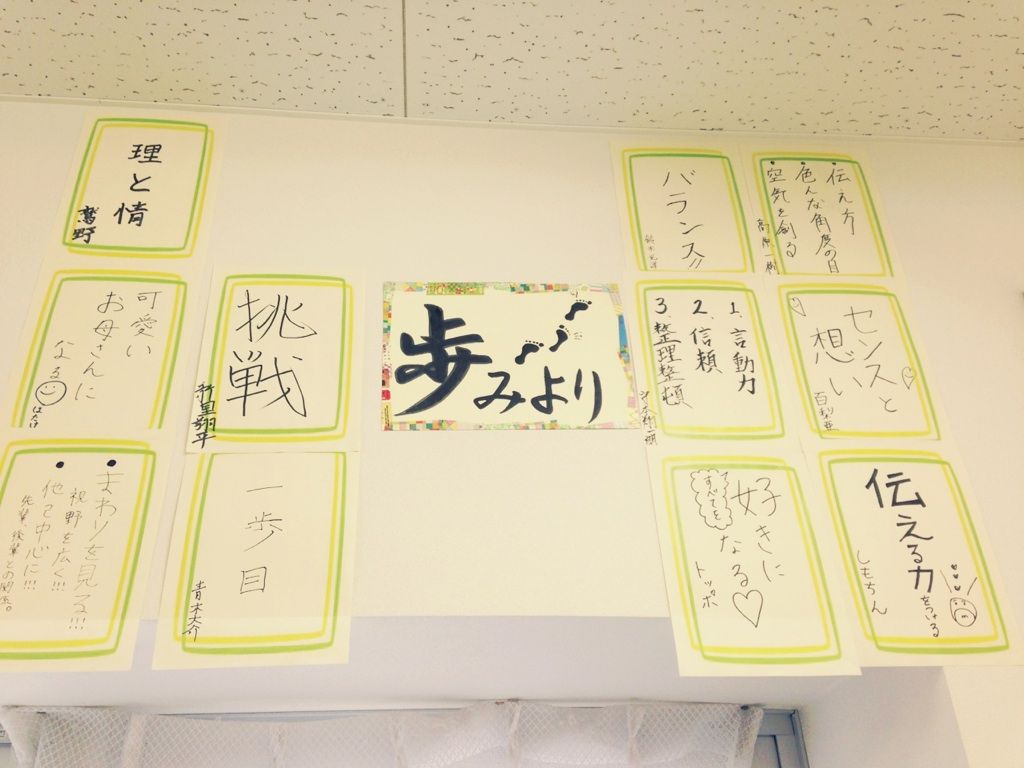 理と情
鷲野
可愛い
お母さんに
なる
はたけ
まわりを見る!!!
視野を広く!!!
他己中心に!!!
先輩、後輩との関係。
挑戦
新里翔平
一歩目
青木大介
歩みより
バランス!!
1. 言動力
2. 信頼
3. 整理整頓
好きに
なる♡
すべてを
トッポ
伝え方
色んな角度の目
空気を創る
高原一樹
センスと
想い
伝える力
をつける
しもちん